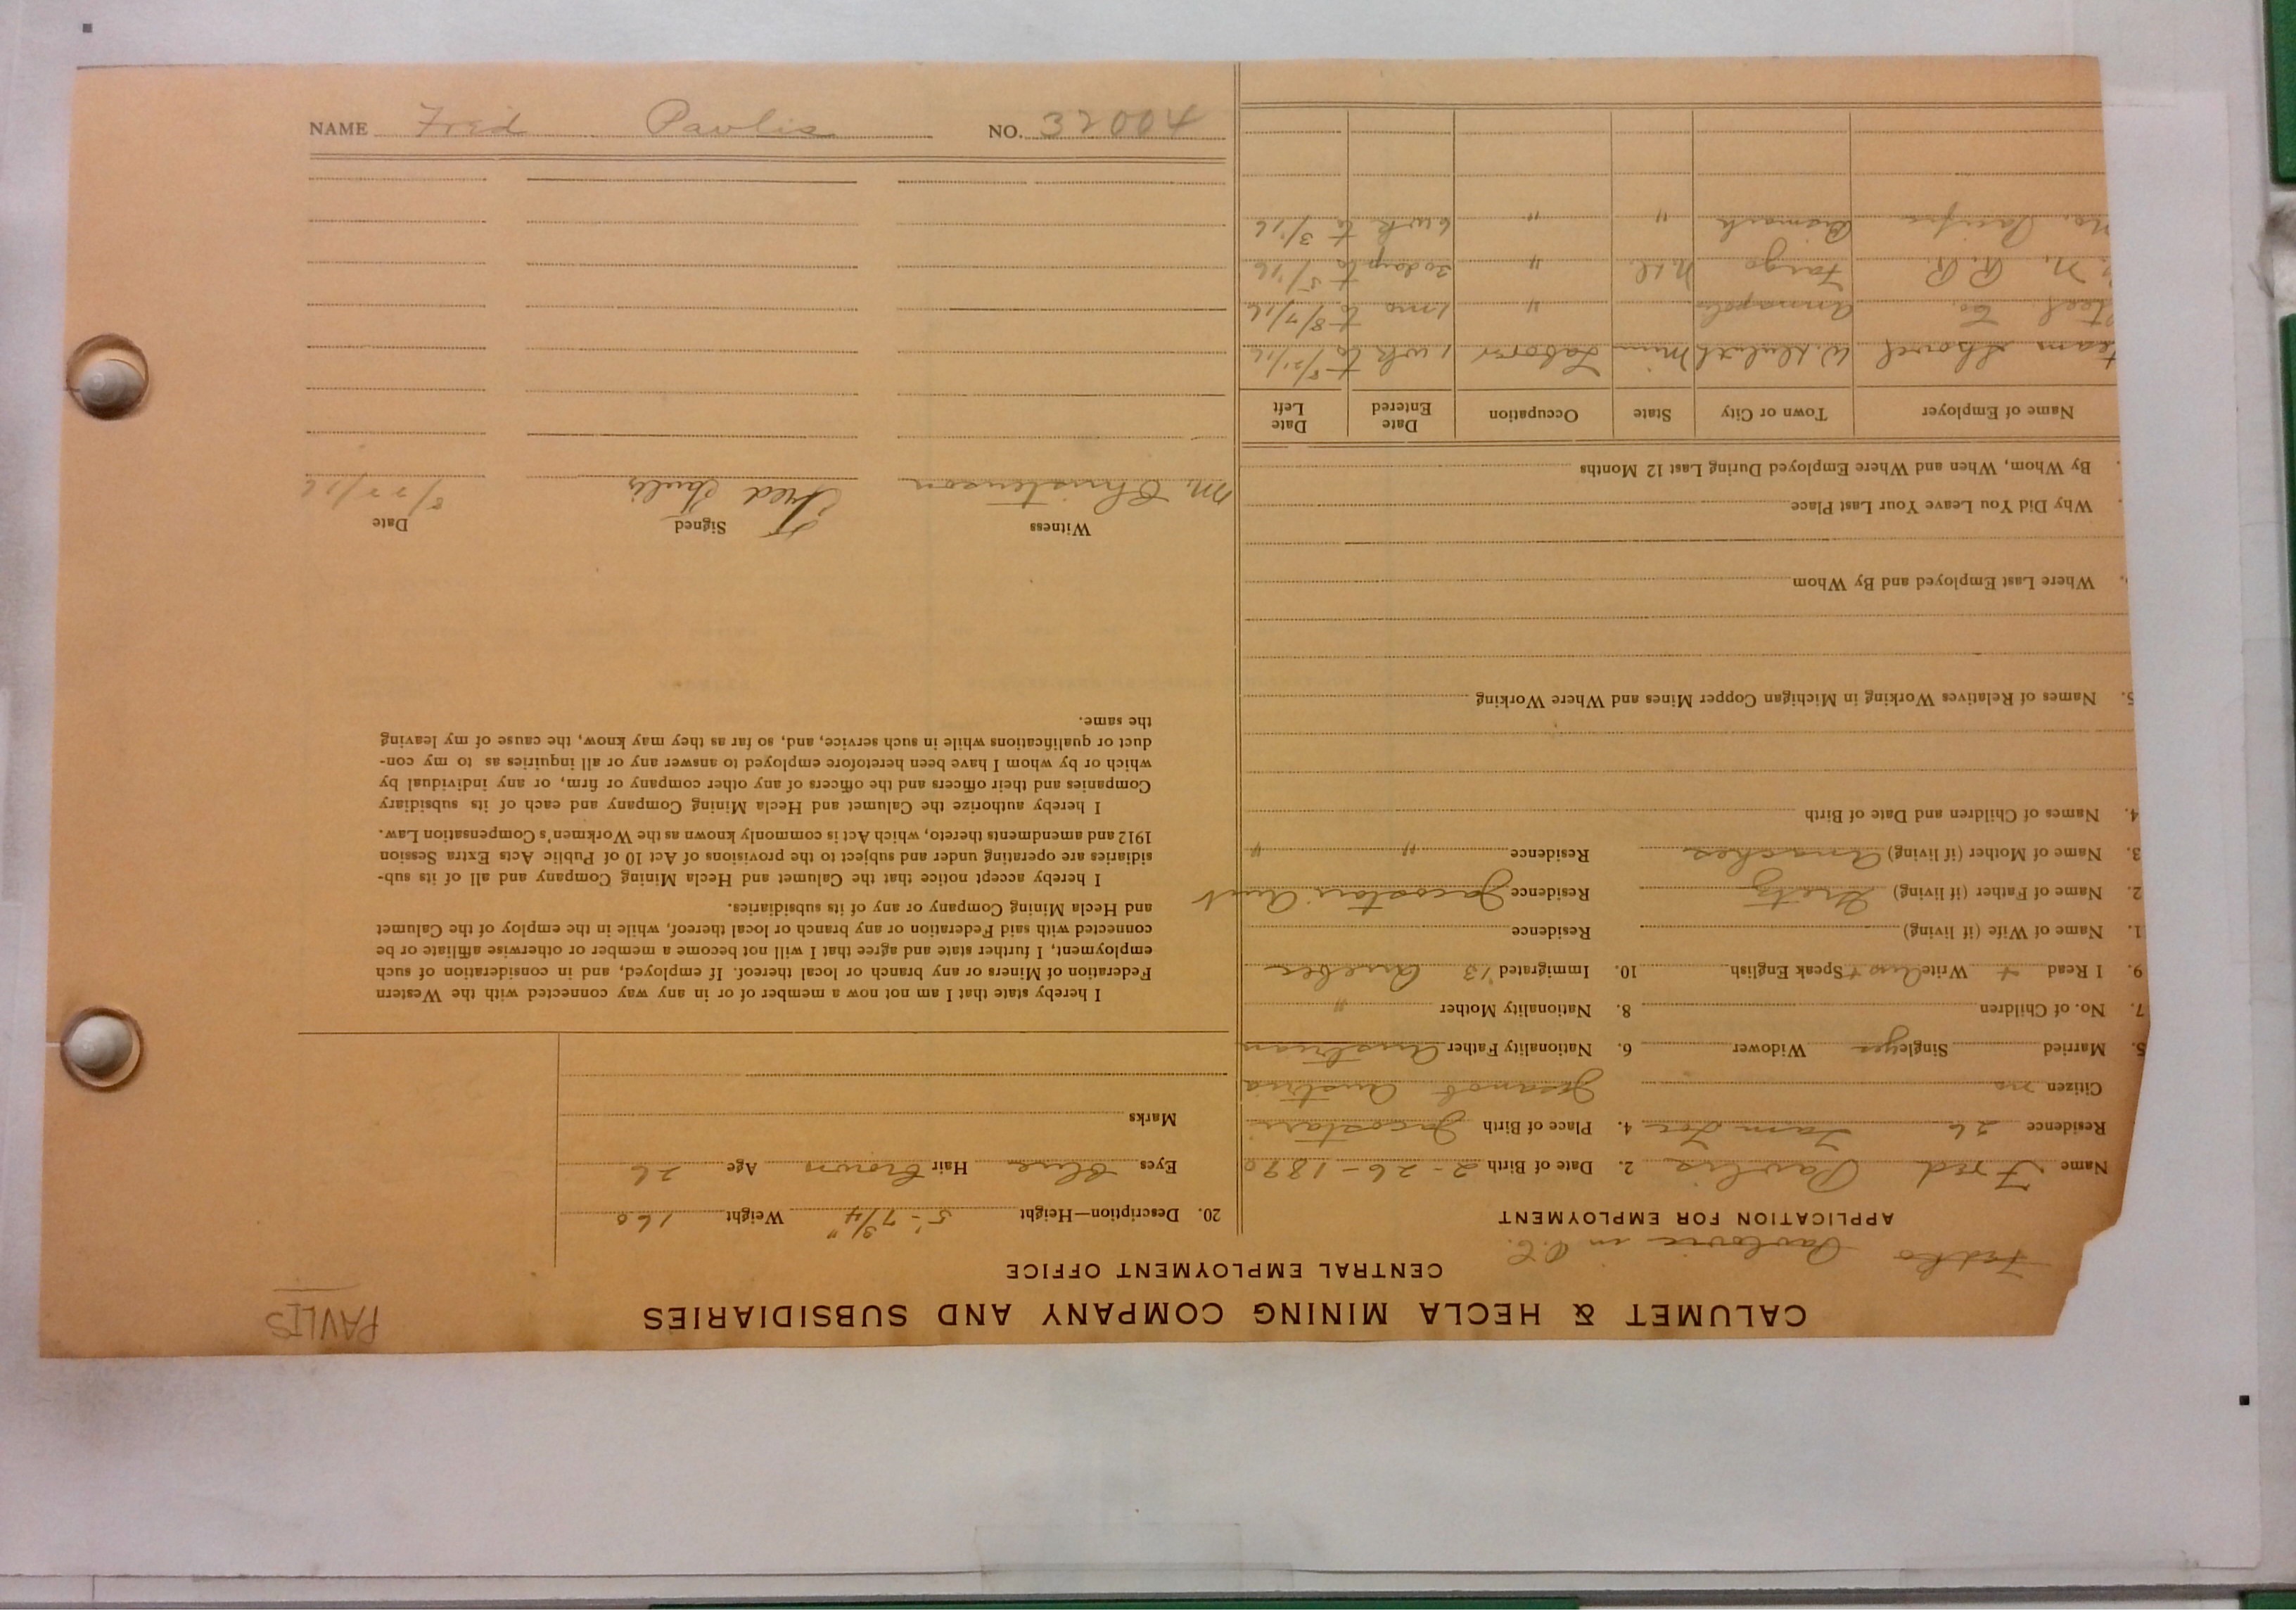 NAME Fred Pavlis NO. 32004
PAVLIS
CALUMET & HECLA MINING COMPANY AND SUBSIDIARIES
CENTRAL EMPLOYMENT OFFICE
Pavlovic in O.C.
APPLICATION FOR EMPLOYMENT
Name Fred Pavlis 2. Date of Birth 2-26-1890
Residence 26 4. Place of Birth
Citizen no Austria
5. Married Single yes Widower 6. Nationality Father Austrian
7. No. of Children 8. Nationality Mother "
9. I Read + Write Aust Speak English 10. Immigrated '13
1. Name of Wife (if living) Residence
2. Name of Father (if living) Residence
3. Name of Mother (if living) Residence " "
4. Names of Children and Date of Birth
5. Names of Relatives Working in Michigan Copper Mines and Where Working
Where Last Employed and By Whom
Why Did You Leave Your Last Place
By Whom, When and Where Employed During Last 12 Months
Name of Employer Town or City State Occupation Date Entered Date Left
team Shovel W. Duluth Minn Laborer 1 wk to 8/21/16
teel Co. " 1 mo to 8/7/16
N. R.R. Fargo N.D. " 20 days to 5/16
No. Bismark " " 6 wk to 3/16
20. Description—Height 5'-7 3/4" Weight 160
Eyes Blue Hair Brown Age 26
Marks
I hereby state that I am not now a member of or in any way connected with the Western
Federation of Miners or any branch or local thereof. If employed, and in consideration of such
employment, I further state and agree that I will not become a member or otherwise affiliate or be
connected with said Federation or any branch or local thereof, while in the employ of the Calumet
and Hecla Mining Company or any of its subsidiaries.
I hereby accept notice that the Calumet and Hecla Mining Company and all of its sub-
sidiaries are operating under and subject to the provisions of Act 10 of Public Acts Extra Session
1912 and amendments thereto, which Act is commonly known as the Workmen's Compensation Law.
I hereby authorize the Calumet and Hecla Mining Company and each of its subsidiary
Companies and their officers and the officers of any other company or firm, or any individual by
which or by whom I have been heretofore employed to answer any or all inquiries as to my con-
duct or qualifications while in such service, and, so far as they may know, the cause of my leaving
the same.
Witness Signed Date
M. Christenson Fred Pavlis 8/22/16